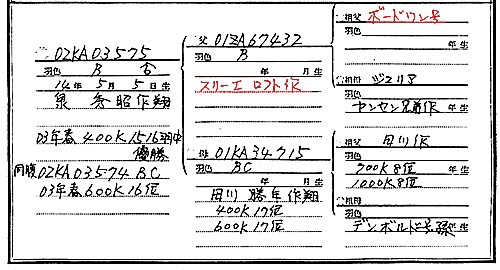 02KA03575
羽色 B 合
14年 5月 5日生
泉 秀昭作翔
03年春 400K 1516羽中
優勝
同腹 02KA03574 BC
03年春600K 16位
父 01ZA67432
羽色 B
年 月 生
スリーエ ロフト作
母 01KA34715
羽色 BC
年 月 生
田川 勝年作翔
400K 17位
600K 17位
祖父 ボードワン号
羽色
年 生
祖母 ジュリア
羽色
ヤンセン兄弟作 年 生
祖父 田川作
羽色
700K 8位 年 生
1000K 8位
祖母
羽色
デンボルド号孫 生